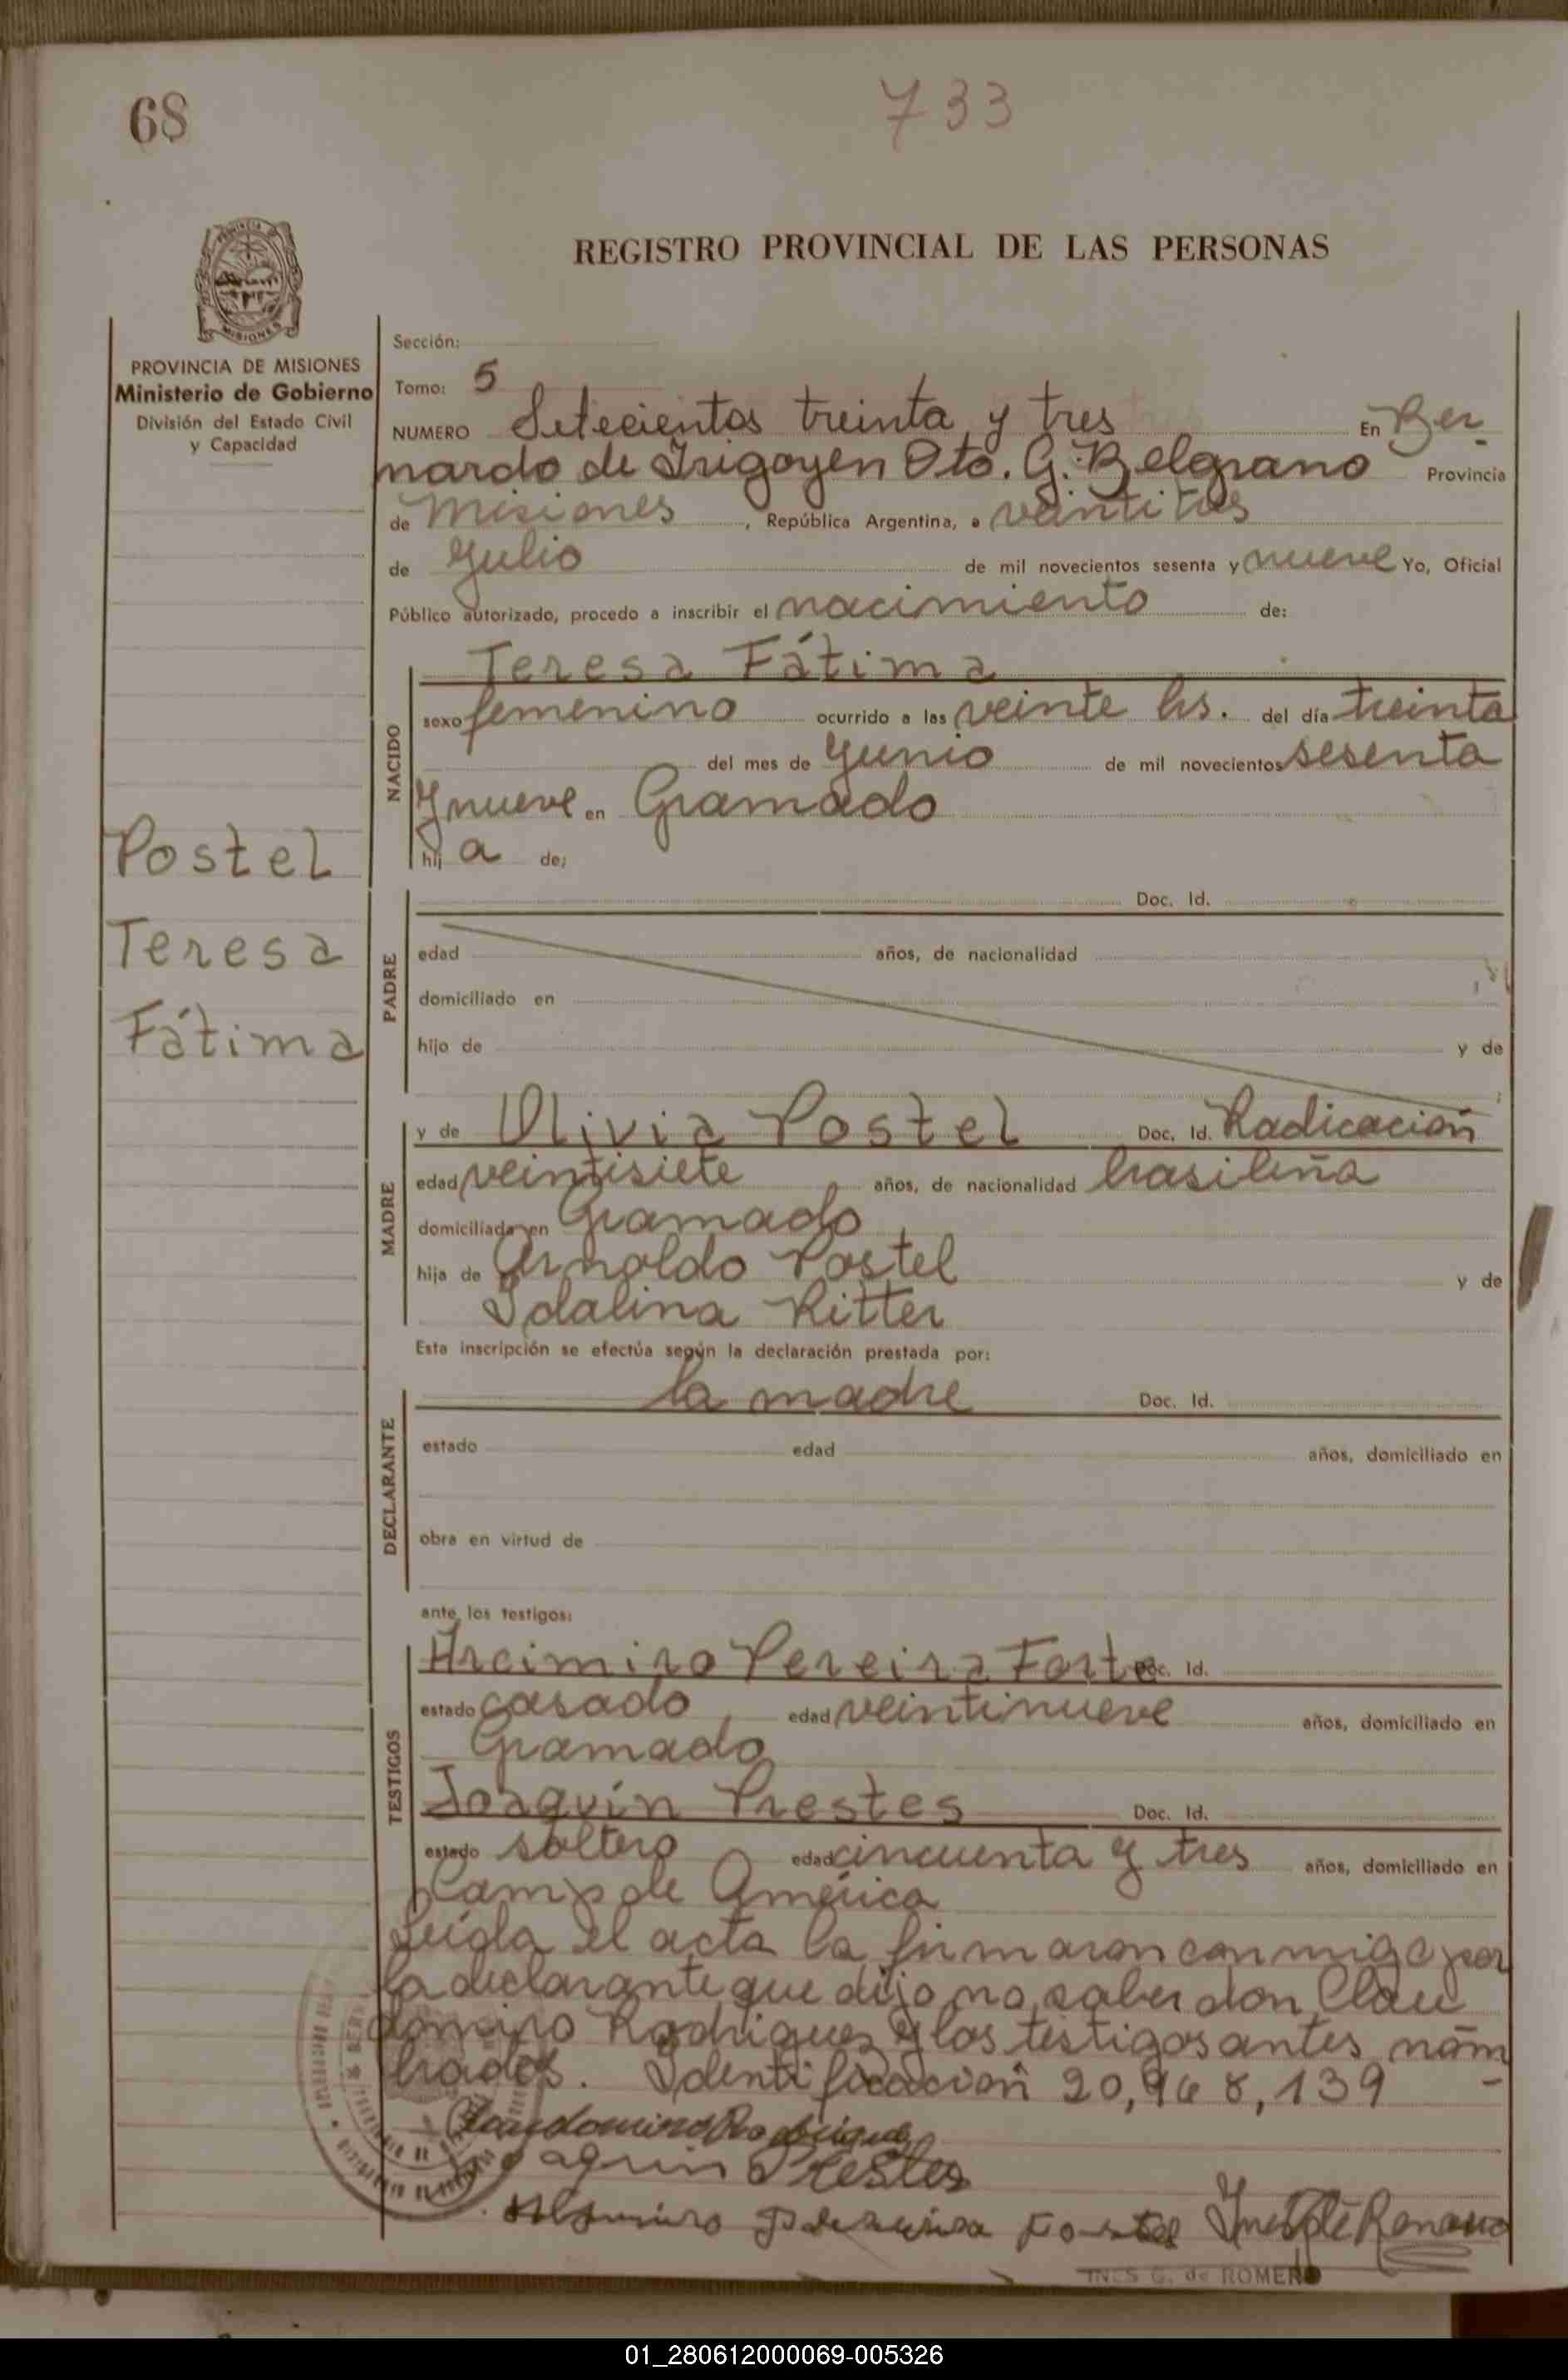 68
733
REGISTRO PROVINCIAL DE LAS PERSONAS
PROVINCIA DE
MISIONES
PROVINCIA DE MISIONES
Ministerio de Gobierno
División del Estado Civil
y Capacidad
Postel
Teresa
Fátima
Sección:
Tomo: 5
NUMERO Setecientos treinta y tres En Ber
nardo de Irigoyen Dto. G. Belgrano Provincia
de Misiones, República Argentina, a veintitres
de Julio de mil novecientos sesenta y nueve Yo, Oficial
Público autorizado, procedo a inscribir el nacimiento de:
NACIDO
Teresa Fátima
sexo femenino ocurrido a las veinte hs. del día treinta
del mes de Junio de mil novecientos sesenta
y nueve en Gramado
hij a de;
PADRE
Doc. Id.
edad años, de nacionalidad
domiciliado en
hijo de y de
MADRE
y de Olivia Postel Doc. Id. Radicación
edad veintisiete años, de nacionalidad brasileña
domiciliada en Gramado
hija de Arnoldo Postel y de
Idalina Ritter
Esta inscripción se efectúa según la declaración prestada por:
DECLARANTE
la madre Doc. Id.
estado edad años, domiciliado en
obra en virtud de
ante los testigos:
TESTIGOS
Arcimiro Pereira Forte Doc. Id.
estado casado edad veintinueve años, domiciliado en
Gramado
Joaquín Prestes Doc. Id.
estado soltero edad cincuenta y tres años, domiciliado en
Campo de América
Leída el acta la firmaron conmigo por
la declarante que dijo no saber don Clau
domiro Rodriguez y los testigos antes nom
brados. Identificación 20,968,139 -
Claudomiro Rodrigues
Prestes
Pereira Fortes Ines G de Romero
INES G. de ROMERO
01_280612000069-005326